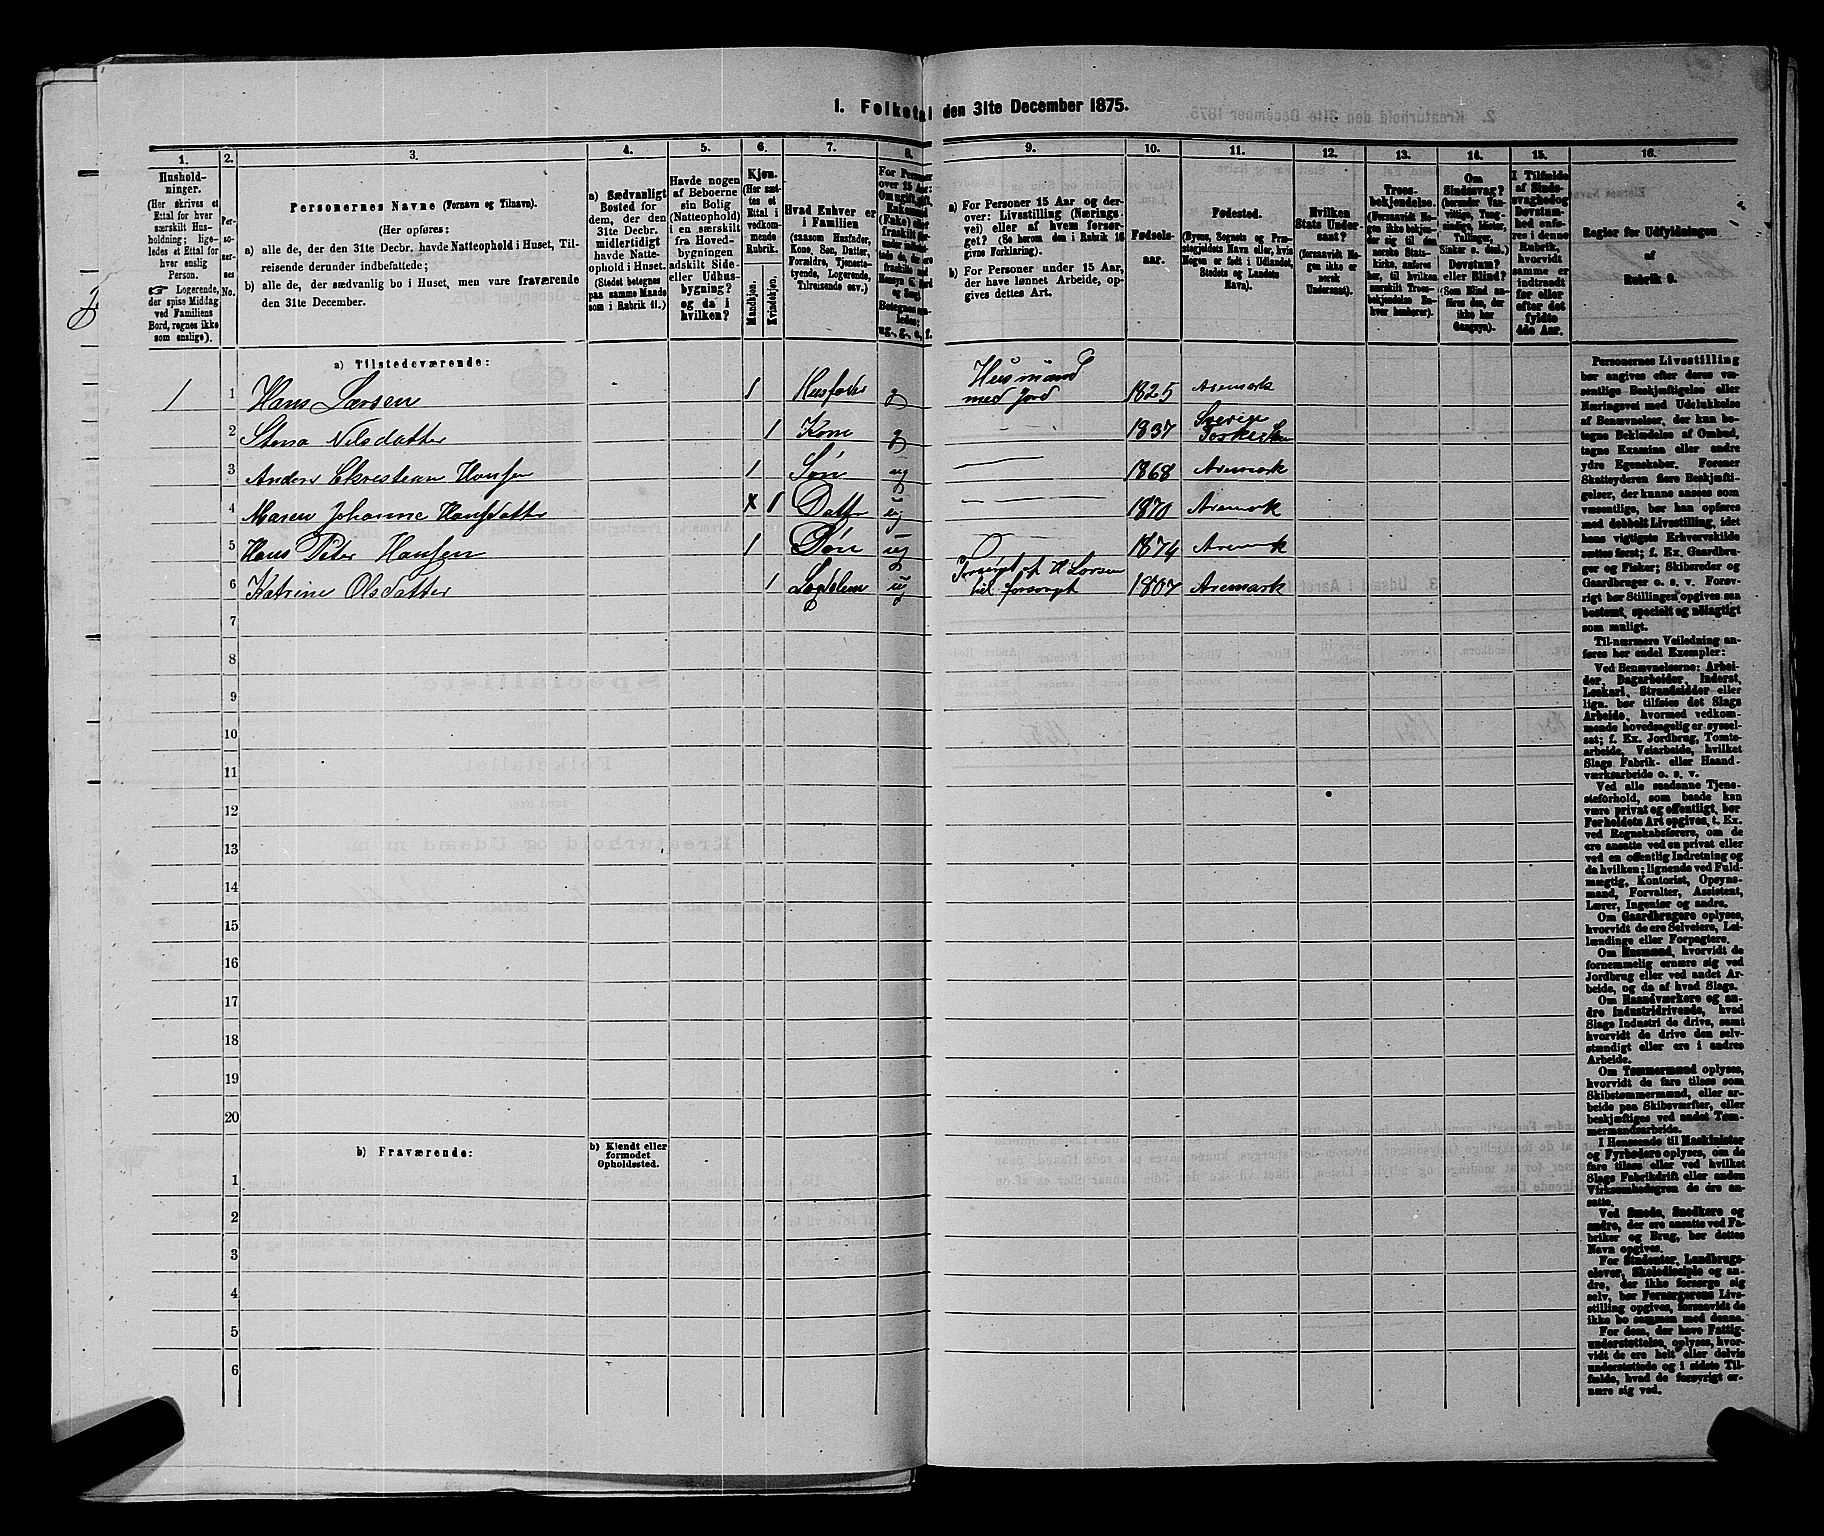 1. Folketal den 31te December 1875.
1.
Hushold-
ninger.
(Her skrives et
Ettal for hver
særskilt Hus-
holdning; lige-
ledes et Ettal for
hver enslig
Person.
☞ Logerende,
der spise Middag
ved Familiens
Bord, regnes ikke
som enslige).
2.
Per-
so-
ner-
nes
No.
3.
Personernes Navne (Fornavn og Tilnavn).
(Her opføres:
a) alle de, der den 31te Decbr. havde Natteophold i Huset, Til-
reisende derunder indbefattede;
b) alle de, der sædvanlig bo i Huset, men vare fraværende
den 31te December.
4.
a) Sædvanligt
Bosted for
dem, der den
31te Decbr.
midlertidigt
havde Natte-
ophold i Huset.
(Stedet betegnes
paa samme Maade
som i Rubrik 11.)
5.
Havde nogen
af Beboerne
sin Bolig
(Natteophold)
i en særskilt
fra Hoved-
bygningen
adskilt Side-
eller Udhus-
bygning?
og da i
hvilken?
6.
Kjøn.
(Her sæt-
tes et
Ettal i
vedkom-
mende
Rubrik.
Mandkjøn.
Kvindekjøn.
7.
Hvad Enhver er
i Familien
(saasom Husfader,
Kone, Søn, Datter,
Forældre, Tjeneste-
tyende, Logerende,
Tilreisende osv.)
8.
For Personer
over 15 Aar:
9.
a) For Personer 15 Aar og der-
over: Livsstilling (Nærings-
vei) eller af hvem forsør-
get? (Se herom den i Rubrik 16
givne Forklaring).
b) For Personer under 15 Aar,
der have lønnet Arbeide, op-
gives dettes Art.
10.
Fødsels-
aar.
11.
Fødested.
(Byens, Sognets og Præ-
stegjeldets Navn eller, hvis
Nogen er født i Udlandet,
Stedets og Landets
Navn).
12.
Hvilken
Stats Under-
saat?
(forsaavidt No-
gen ikke er
norsk
Undersaat).
13.
Troes-
bekjendelse.
(Forsaavidt No-
gen ikke bekjen-
der sig til den
norske Stats-
kirke, anføres
her, til hvilken
særskilt Troes-
bekjendelse En-
hver henhører).
14.
Om
Sindssvag?
(herunder Van-
vittige, Tung-
sindige, Idioter,
Tullinger,
Sinker o. desl.)
Døvstum?
eller Blind?
(Som Blind an-
føres den, der
ikke har
Gangsyn).
15.
I Tilfælde
af Sinds-
svaghed og
Døvstum-
hed anfø-
res i denne
Rubrik,
hvorvidt
samme er
indtraadt
før eller
efter det
fyldte
4de Aar.
16.
Regler for Udfyldningen
af
Rubrik 9.
a) Tilstedeværende:
1 1 Hans Larsen 1 Husfader g Husmand med Jord 1825 Aremark
2 Stena Nilsdatter 1 Kone g 1837 Sverige
3 Anders Ckrestian Hansen 1 Søn ug 1868 Aremark
4 Maren Johanne Hansdatter x 1 Datter ug 1870 Aremark
5 Hans Peter Hansen 1 Søn ug 1874 Aremark
6 Katrine Olsdatter 1 ug 1807 Aremark
7
8
9
10
11
12
13
14
15
16
17
18
19
20
b) Fraværende:
b) Kjendt eller
formodet
Opholdssted.
1
2
3
4
5
6
Personernes Livsstilling
bør angives efter deres væ-
sentlige Beskjæftigelse eller
Næringsvei med Udelukkelse
af Benævnelser, der kun be-
tegne Beklædelse af Ombud,
tagne Examina eller andre
ydre Egenskaber. Forener
Skatteyderen flere Beskjæfti-
gelser, der kunne ansees som
væsentlige, bør han opføres
med dobbelt Livsstilling, idet
hans vigtigste Erhvervskilde
sættes først; f. Ex. Gaardbru-
ger og Fisker; Skibsreder og
Gaardbruger o. s. v. Forøv-
rigt bør Stillingen opgives saa
bestemt, specielt og nøiagtigt
som muligt.
Til nærmere Veiledning an-
føres her endel Exempler:
Ved Benævnelserne: Arbei-
der, Dagarbeider, Inderst,
Løskarl, Strandsidder eller
lign. bør tilføies det Slags
Arbeide, hvormed vedkom-
mende hovedsagelig er syssel-
sat; f. Ex. Jordbrug, Tomte-
arbeide, Veiarbeide, hvilket
Slags Fabrik- eller Haand-
værksarbeide o. s. v.
Ved alle saadanne Tjene-
steforhold, som baade kan
være privat og offentligt, bør
Forholdets Art opgives, t. Ex.
ved Regnskabsførere, om de
ere ansatte ved en privat eller
ved en offentlig Indretning og
da hvilken; lignende ved Fuld-
mægtig, Kontorist, Opsyns-
mand, Forvalter, Assistent,
Lærer, Ingeniør og andre.
Om Gaardbrugere oplyses,
hvorvidt de ere Selveiere, Lei-
lændinge eller Forpagtere.
Om Husmænd, hvorvidt de
fornemmelig ernære sig ved
Jordbrug eller ved andet Ar-
beide, og da af hvad Slags.
Om Haandværkere og an-
dre Industridrivende, hvad
Slags Industri de drive, samt
hvorvidt de drive den selv-
stændigt eller ere i andres
Arbeide.
Om Tømmermænd oplyses,
hvorvidt de fare tilsøs som
Skibstømmermænd, eller ar-
beide paa Skibsværfter, eller
beskjæftiges ved andet Tøm-
mermandsarbeide.
I Henseende til Maskinister
og Fyrbødere oplyses, om de
fare tilsøs eller ved hvilket
Slags Fabrikdrift eller anden
Virksomhed de ere an-
satte.
Ved Smede, Snedkere og
andre, der ere ansatte ved Fa-
briker og Brug, bør dettes
Navn opgives.
For Studenter, Landbrugs-
elever, Skoledisciple og an-
dre, der ikke forsørge sig
selv, bør Forsørgerens Livs-
stilling opgives, forsaavidt de
ikke bo sammen med denne.
For dem, der have Fattig-
understøttelse, oplyses, hvor-
vidt de ere helt eller delvis
understøttede og i sidste Til-
fælde, hvad de forøvrigt er-
nære sig ved.